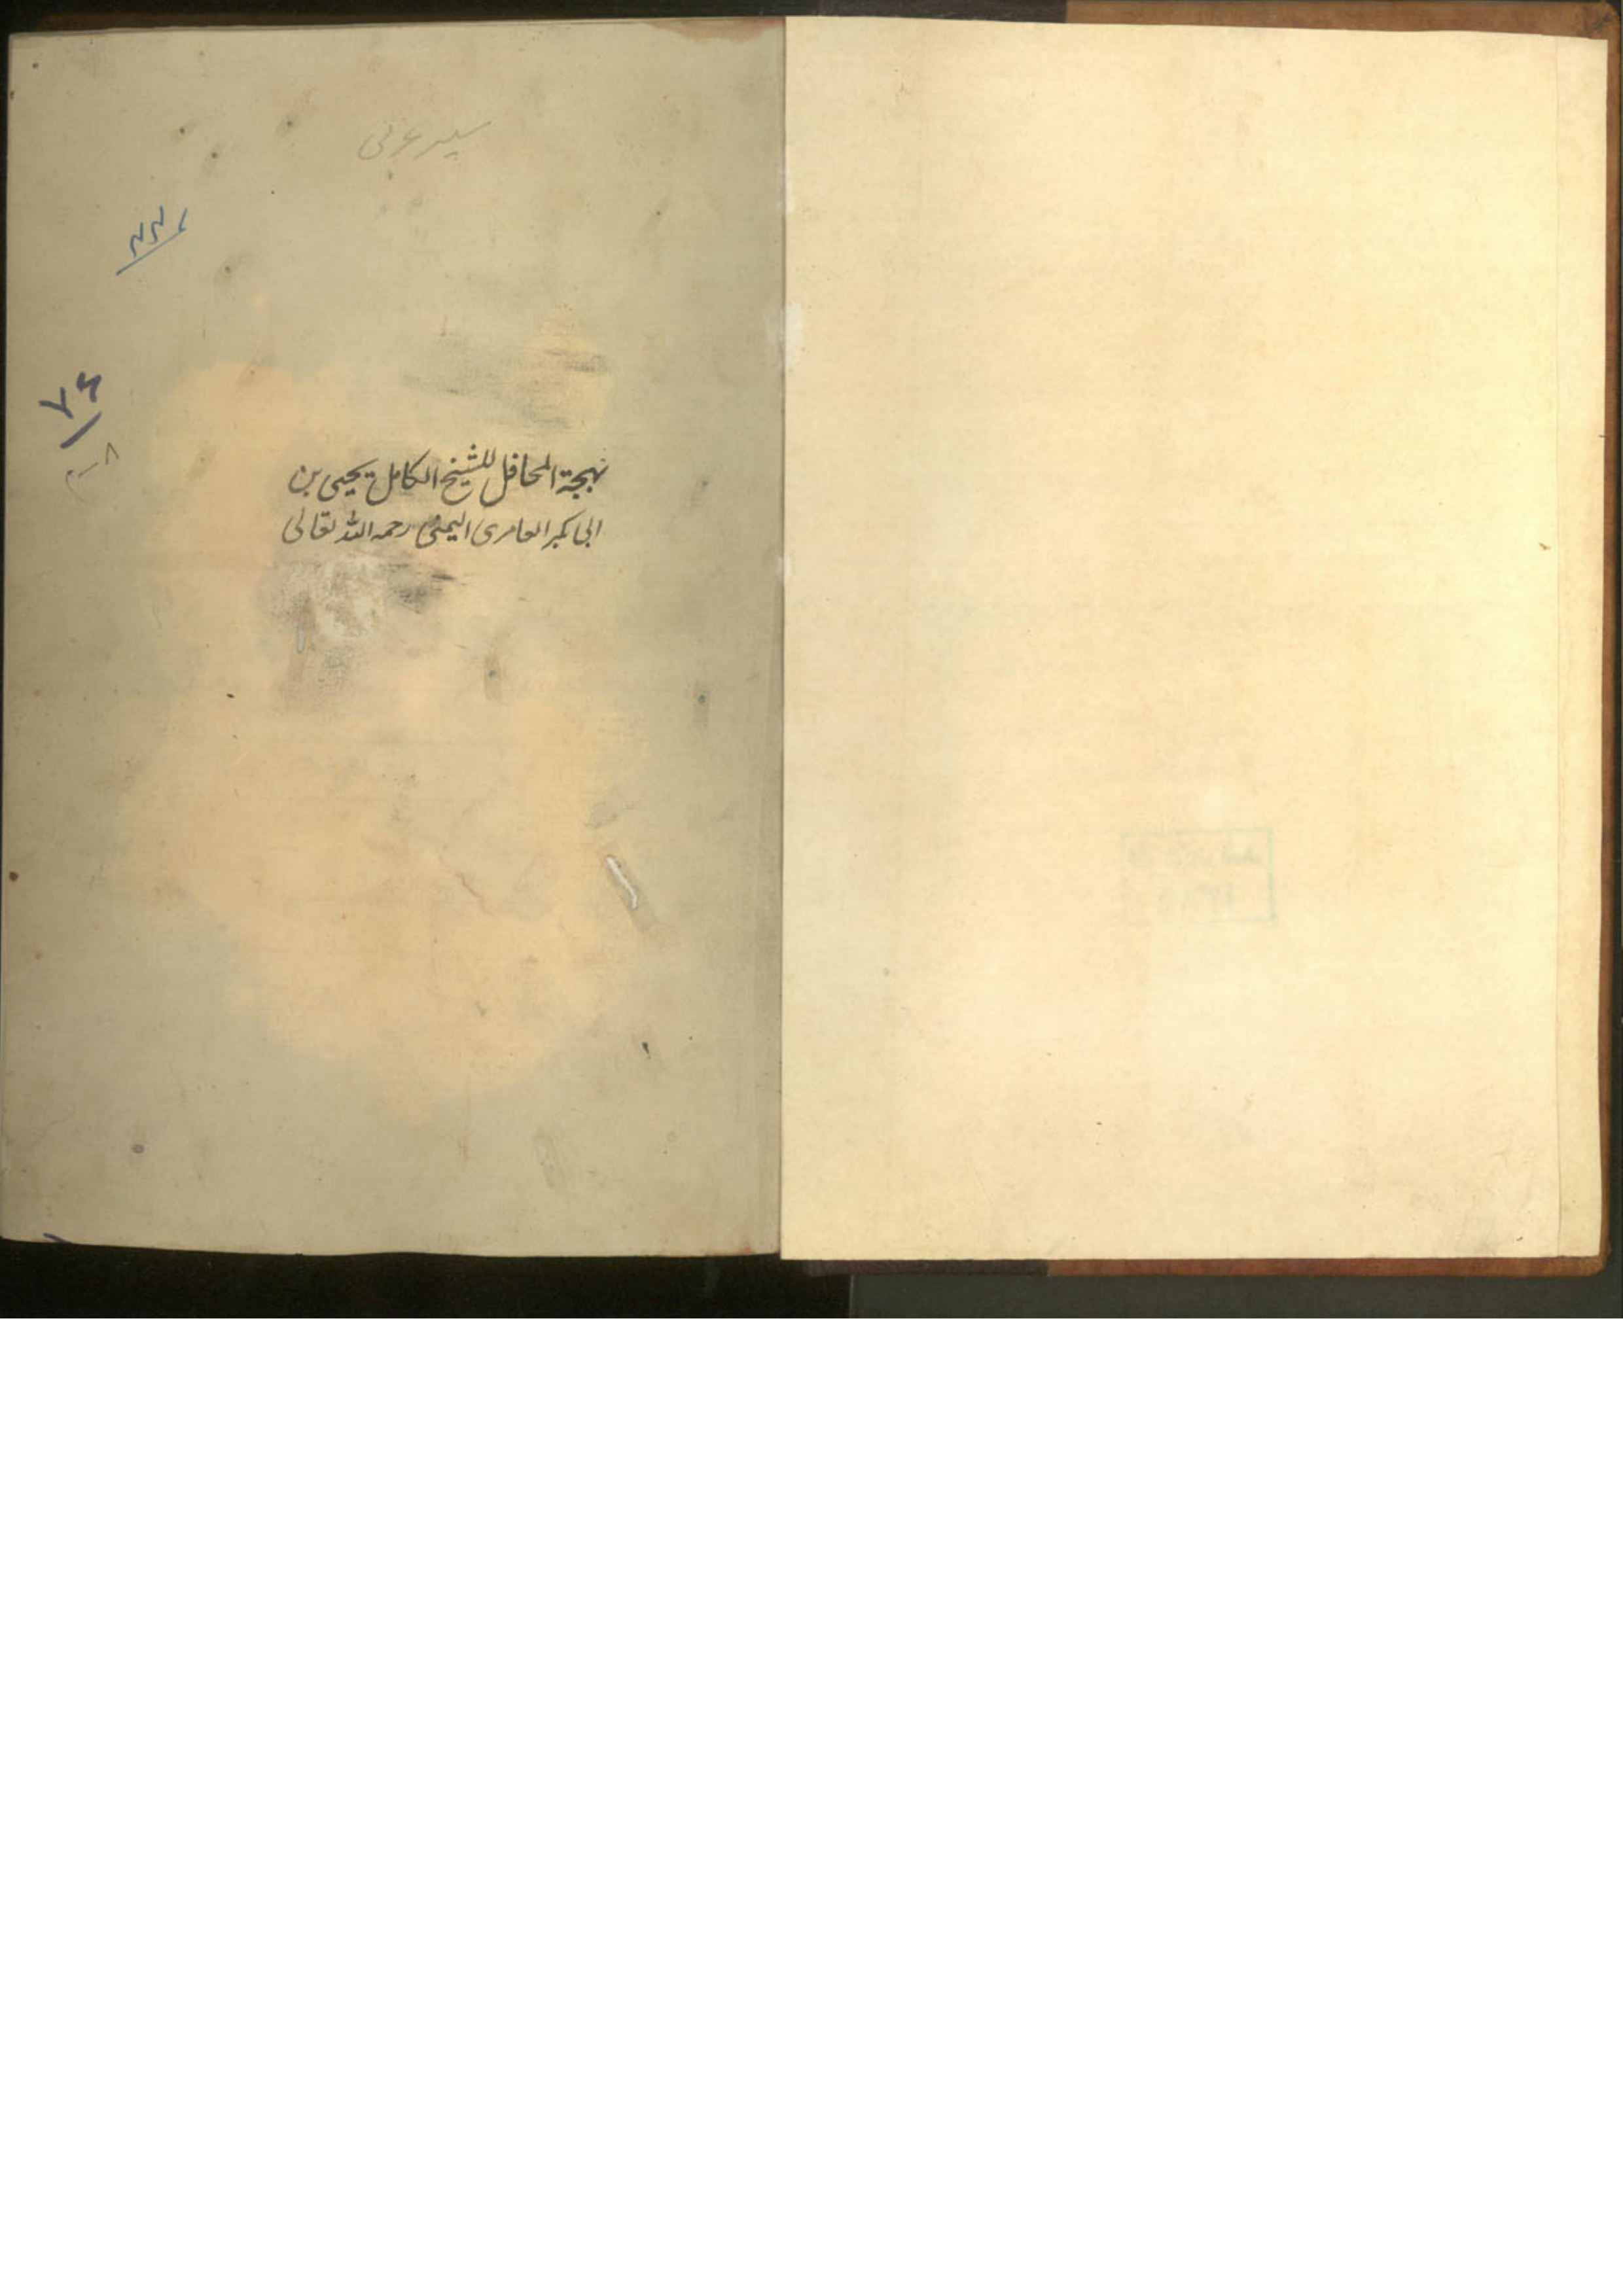 سیر عربی
بهجة المحافل للشیخ الکامل یحیی بن
ابی بکر العامری الیمنی رحمه الله تعالی